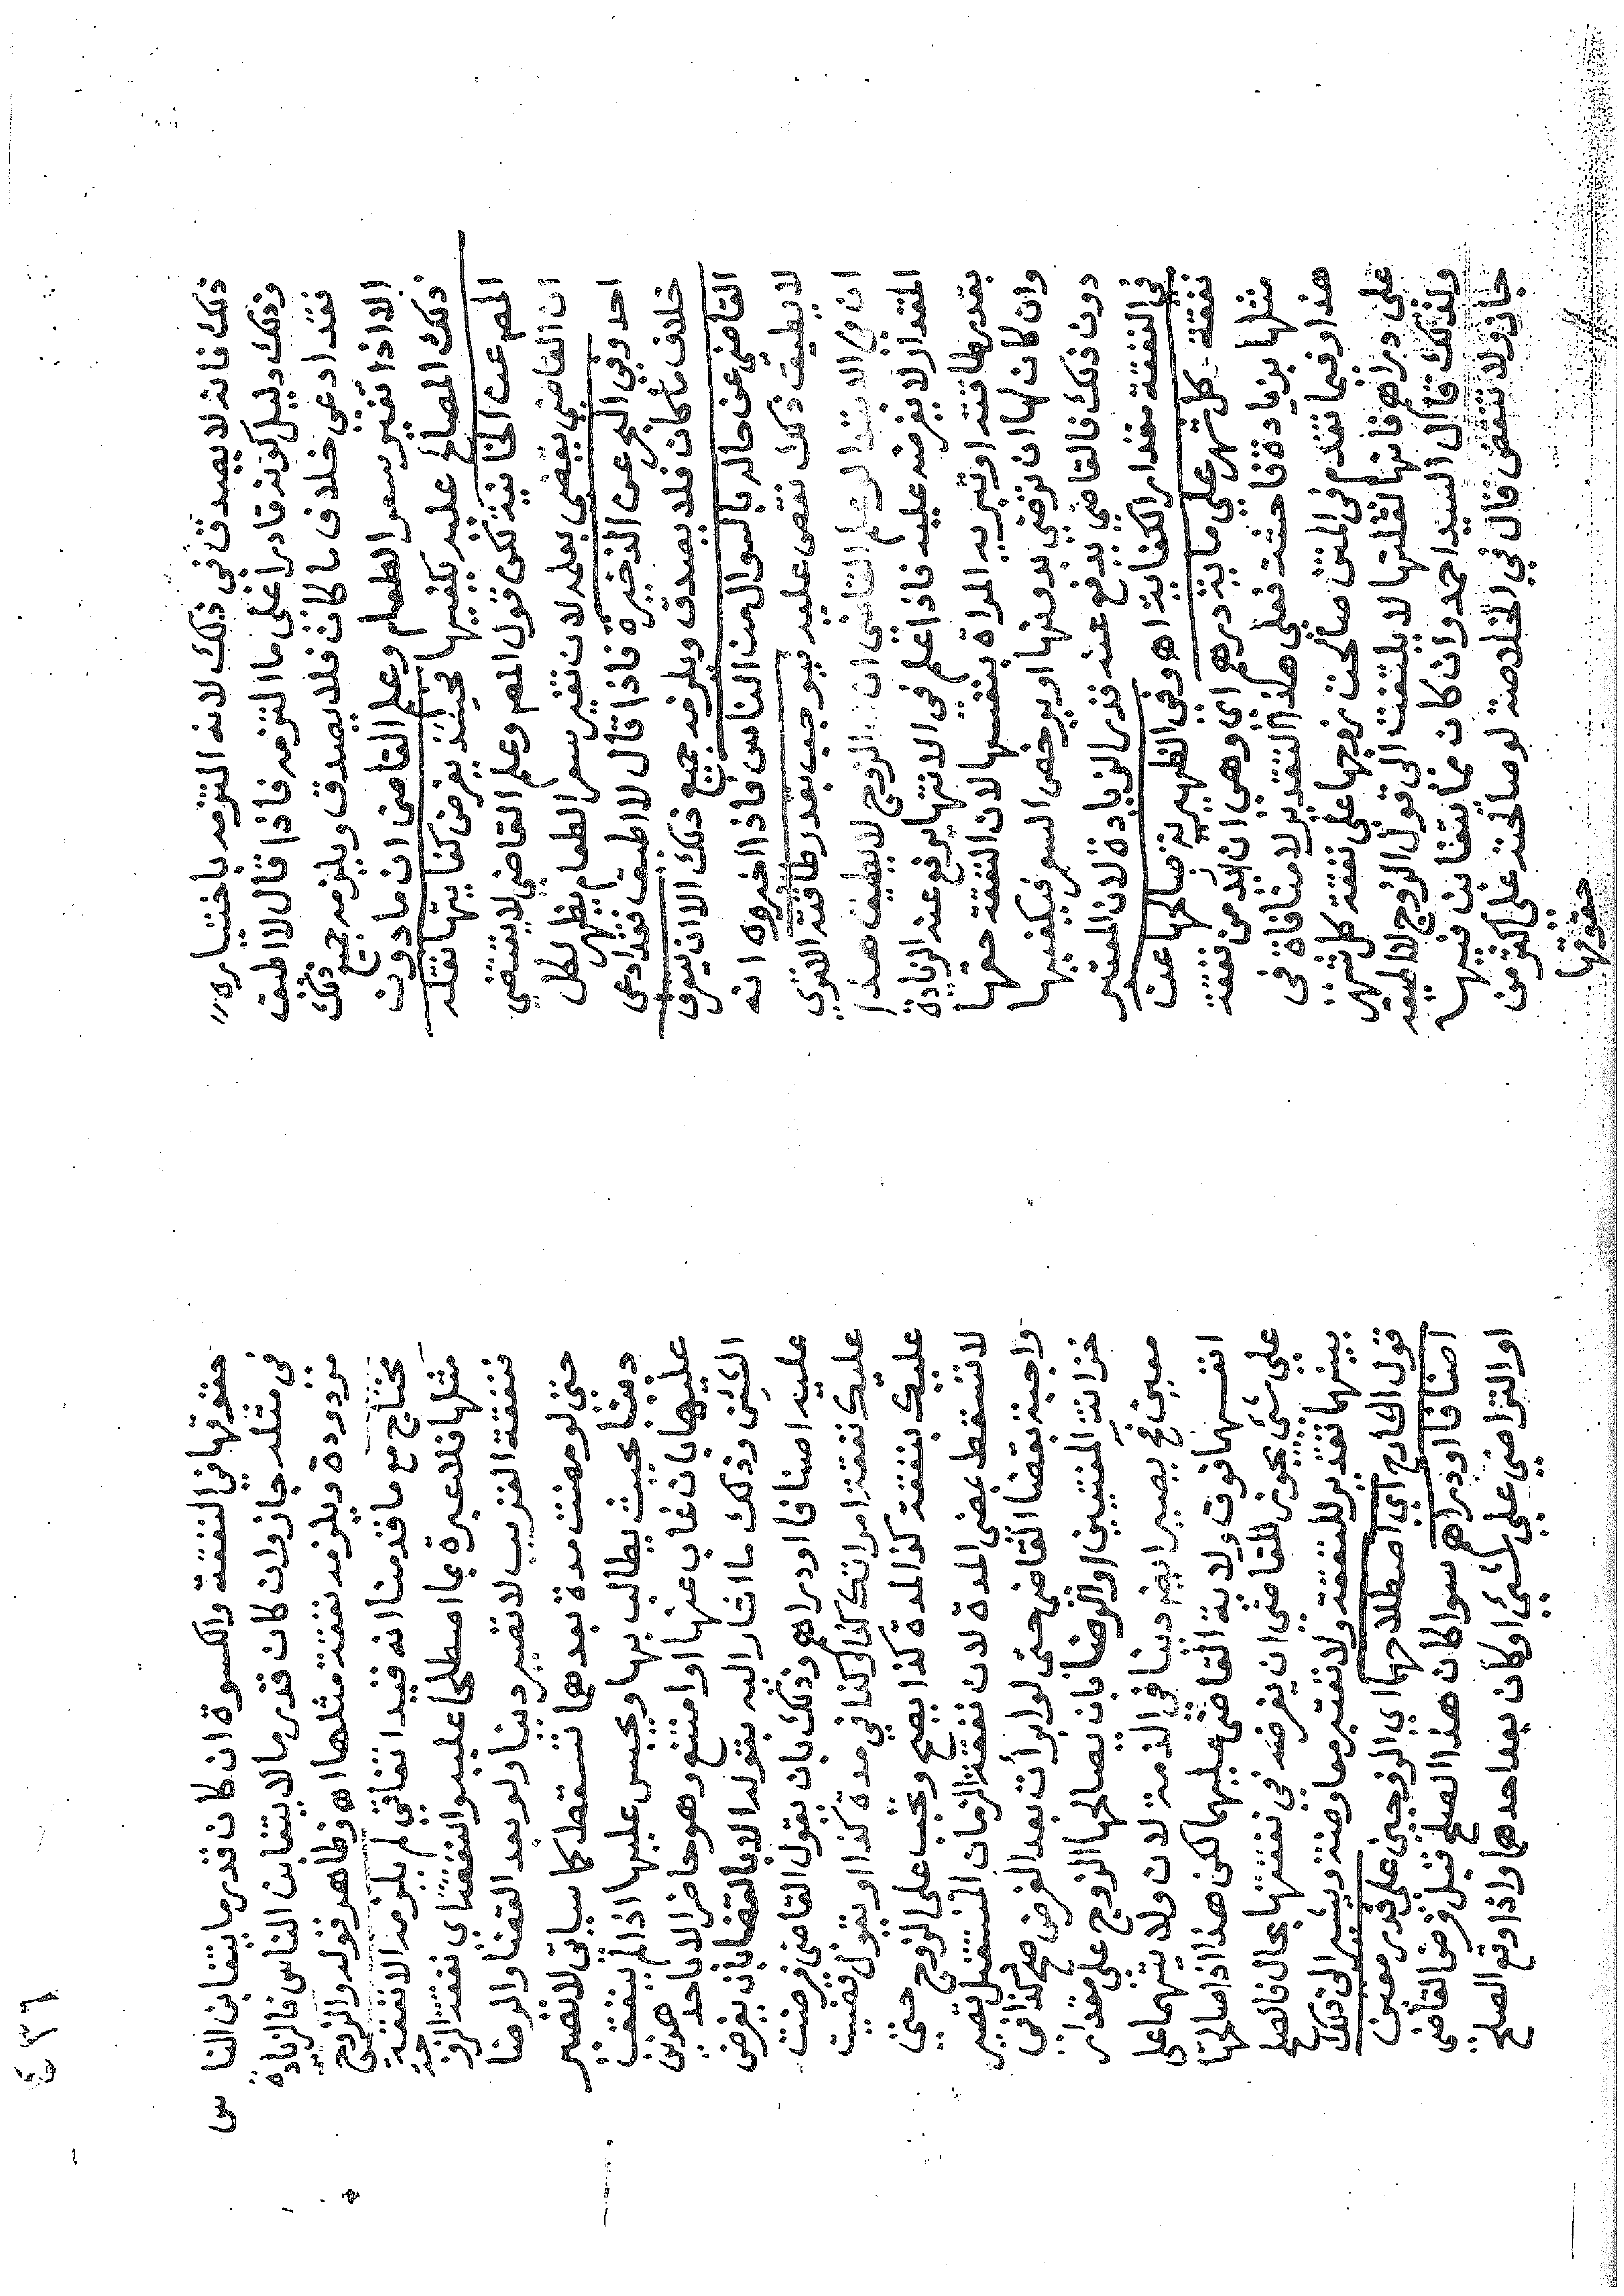 ذلك فانه لا يصدق في ذلك لانه التزمه باختياره
وذلك دليل كونه قادرا على ما التزمه فاذا قال لا اطيق
فقد ادعي خلاف ما كان فلا يصدق ويلزمه جميع ذلك
الا اذا تغير سعر الطعام وعلم القاضي ان ما دون
ذلك المصالح عليه يكفيها فحينئذ يفرض كفايتها نقله
المص عن الخانية لكن قول المص وعلم القاضي لا يقتضي
ان القاضي يقضي بعلمه لان تغير سعر الطعام يظهر لكل
احد وفي البحر عن الذخيرة فاذا قال لا اطيق فقد ادعى
خلاف ما كان فلا يصدق ويلزمه جميع ذلك الا ان يتعرف
القاضي عن حاله بالسوال من الناس فاذا اخبروه انه
لا يطيق ذلك نقص عليه فيوجب بقدر طاقته الا ترى
ان في الابتدا لو علم القاضي ان الزوج لا يطيق هذا
المقدار لا يفرضه عليه فاذا علم في الانتها يرفع عنه الزيادة
بقدر طاقته او تبريه المراة بنفسها لان النفقة حقها
وان كان لها ان ترضي بدونها او يرخص السعر فيكفيها
دون ذلك فالقاضي يدفع عنه قدر الزيادة لان المعتبر
في النفقة مقدار الكفاية اه وفي الظهيرية صالحها عن
نفقة كل شهر علي ماية درهم اي وهي ازيد من نفقة
مثلها بزيادة فاحشة فعلى هذا التقدير لا منافاة في
هذا وفيما تقدم في المتن صالحت زوجها على نفقة كل شهر
على دراهم فانها لقلتها لا يلتفت الى قول الزوج لا اطيقه
ولذلك قال السيد احمد وان كان مما يتغابن فيها
جاز ولا تنتقض قال في الخلاصة لو صالحته على اكثر من
حقوقها
٤٣٦
حقوقها في النفقة والكسوة ان كان قدر ما يتغابن الناس
في مثله جاز وان كان قدر ما لا يتغابن الناس فالزيادة
مردودة ويلزمه نفقة مثلها اه وظاهر قوله والزوج
محتاج مع ما قدمنا انه قيد اتفاقي لم يلزمه الا نفقة
مثلها فلا عبرة بما اصطلحا عليه والنفقة اي نفقة الزوجة
فنفقة القريب لا تصير دينا ولو بعد القضا والرضا
حتى لو مضت مدة بعدهما تسقط كما سياتي لا تصير
دينا بحيث يطالب بها ويحبس عليها اذا لم ينفق
عليها بان غاب عنها او امتنع وهو حاضر الا باحد هذين
الشيئين وذلك ما اشار اليه بقوله الا بالقضا بان يفرض
عليه اصنافا او دراهم وذلك بان يقول القاضي فرضت
عليك نفقة امراتك كذا وكذا في مدة كذا او يقول قضيت
عليك بنفقة كذا لمدة كذا يصح وتجب على الزوج حتى
لا تسقط بمضي المدة لان نفقة الزمان المستقبل تصير
واجبة بقضا القاضي حتى لو ابرأت بعد الفرض صح كذا في
خزانة المفتيين او الرضا بان يصالحها الزوج على مقدار
معين فح يصير ايضا دينا في الذمة لان ولايتهما على
انفسهما فوق ولاية القاضي عليهما لكن هذا اذا صالحها
على شي يجوز للقاضي ان يفرضه في نفقتها بحال فالصلح
بينهما تقدير للنفقة ولا تعتبر معاوضة ويشير الى ذلك
قول الشارح اي اصطلاحهما اي الزوجين على قدر معين
اصنافا او دراهم سوا كان هذا الصلح قبل فرض القاضي
او التراضي على شي او كان بعد احدهما واذا وقع الصلح